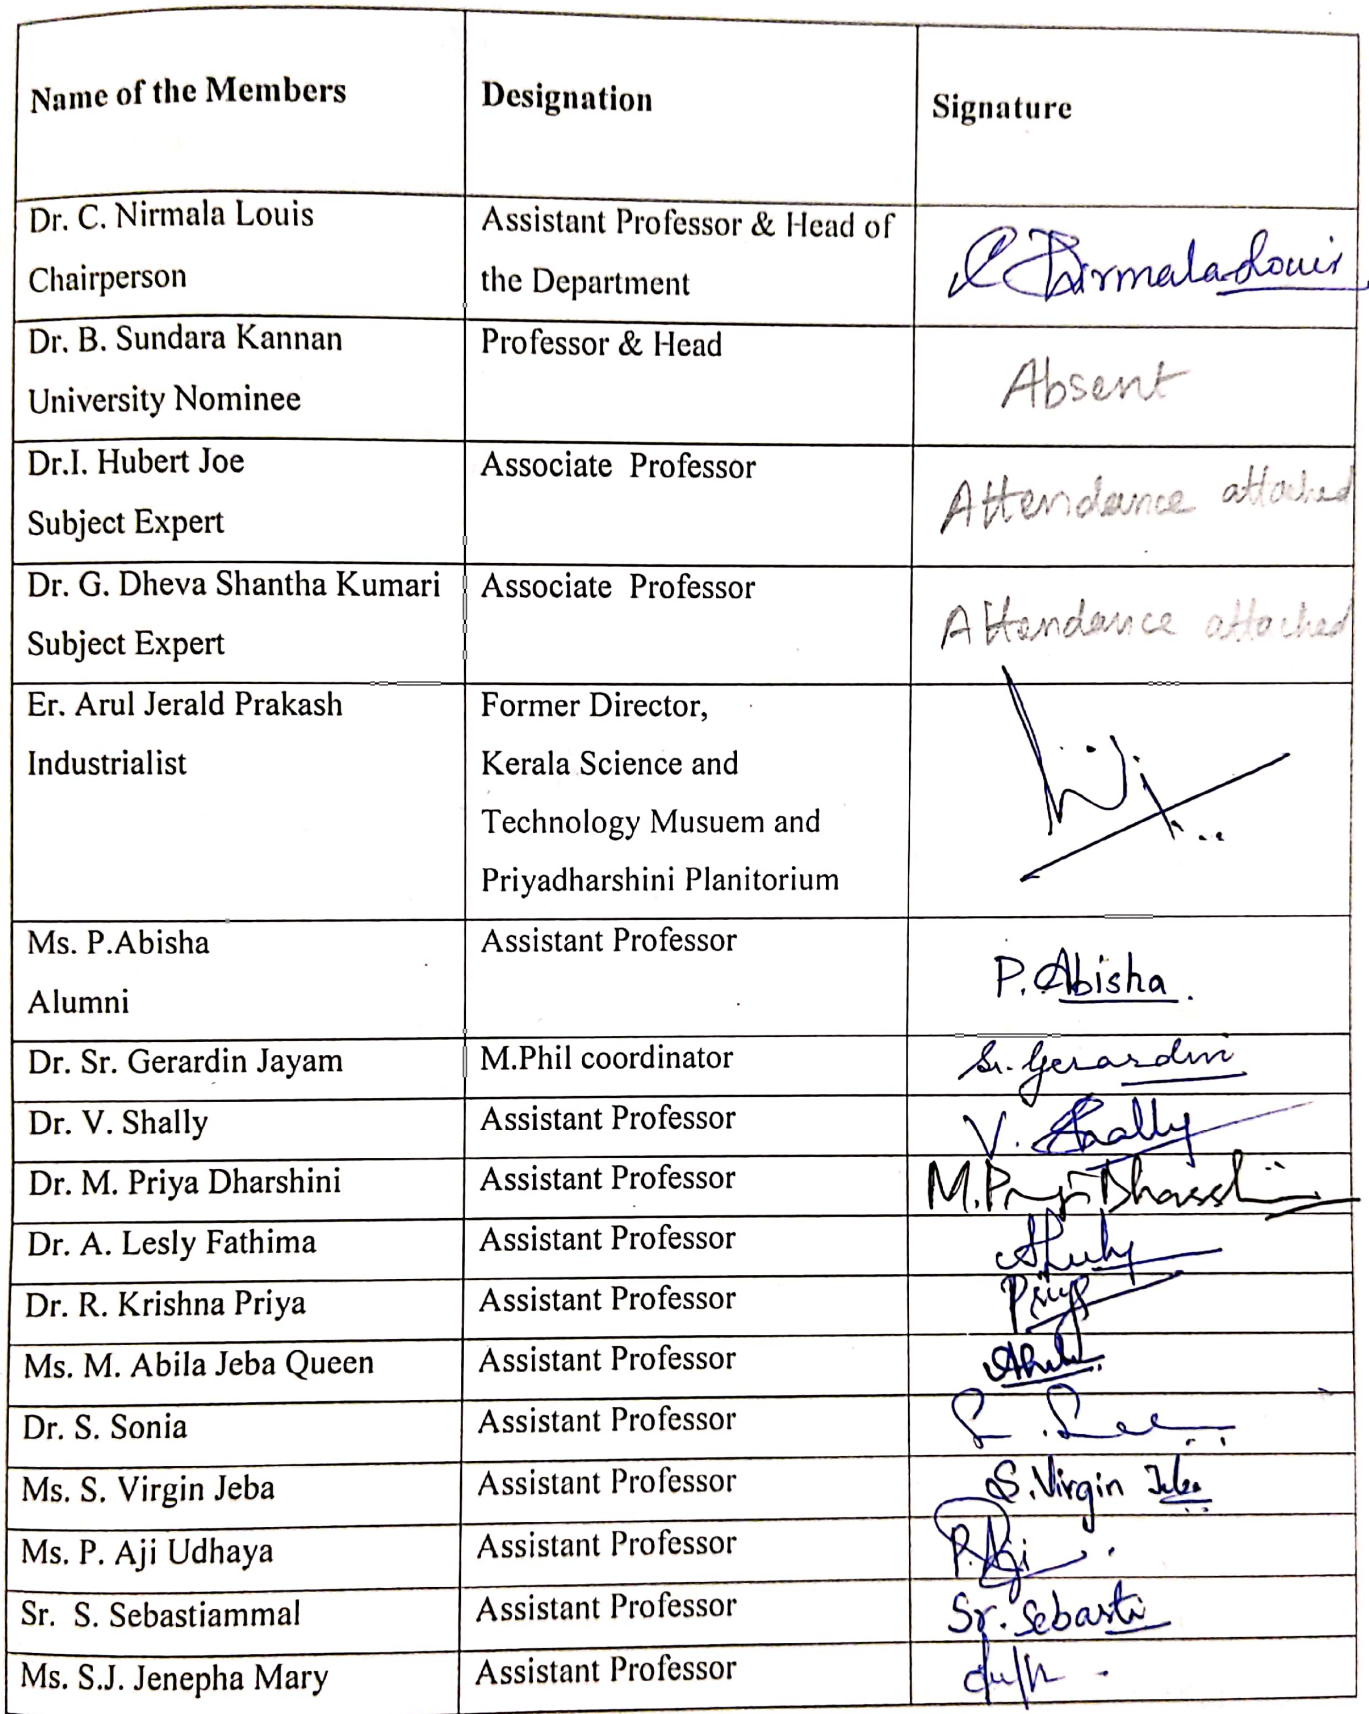 Name of the Members Designation Signature
Dr. C. Nirmala Louis Assistant Professor & Head of C Nirmala Louis
Chairperson the Department
Dr. B. Sundara Kannan Professor & Head Absent
University Nominee
Dr.I. Hubert Joe Associate Professor Attendance attached
Subject Expert
Dr. G. Dheva Shantha Kumari Associate Professor Attendance attached
Subject Expert
Er. Arul Jerald Prakash Former Director,
Industrialist Kerala Science and
Technology Musuem and
Priyadharshini Planitorium
Ms. P.Abisha Assistant Professor P. Abisha.
Alumni
Dr. Sr. Gerardin Jayam M.Phil coordinator Sr. Gerardin
Dr. V. Shally Assistant Professor V. Shally
Dr. M. Priya Dharshini Assistant Professor M.Priya
Dr. A. Lesly Fathima Assistant Professor
Dr. R. Krishna Priya Assistant Professor Priya
Ms. M. Abila Jeba Queen Assistant Professor
Dr. S. Sonia Assistant Professor
Ms. S. Virgin Jeba Assistant Professor S. Virgin Jeba
Ms. P. Aji Udhaya Assistant Professor P. Aji
Sr. S. Sebastiammal Assistant Professor Sr. Sebasti
Ms. S.J. Jenepha Mary Assistant Professor